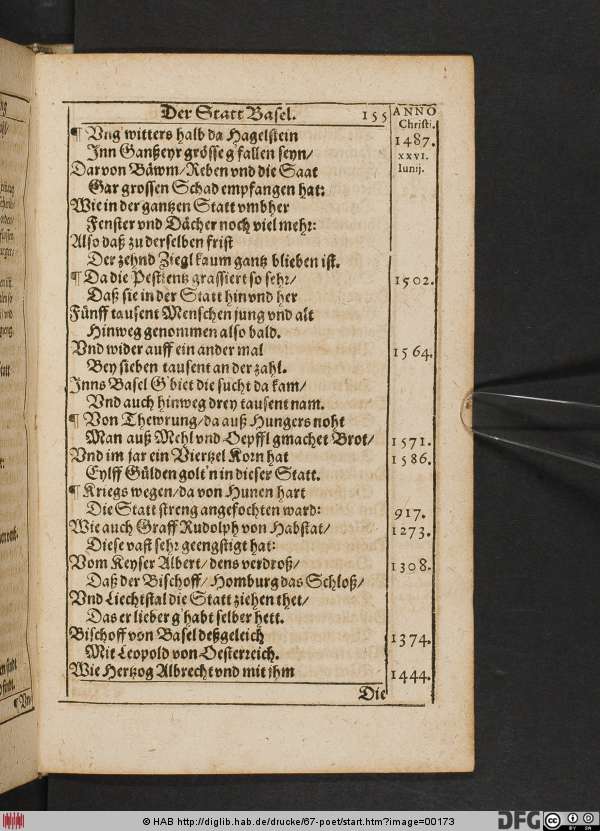 Der Statt Basel. 155 ANNO
Christi.
¶ Vng witters halb da Hagelstein 1487.
Inn Ganßeyr grösse g'fallen seyn/ XXVI.
Darvon Bäwm/Reben vnd die Saat Iunij.
Gar grossen Schad empfangen hat:
Wie in der gantzen Statt vmbher
Fenster vnd Dächer noch viel mehr:
Also daß zu derselben frist
Der zehnd Ziegl kaum gantz blieben ist.
¶ Da die Pestilentz grassiert so sehr/ 1502.
Daß sie in der Statt hin vnd her
Fünff tausent Menschen jung vnd alt
Hinweg genommen also bald.
Vnd wider auff ein ander mal 1564.
Bey sieben tausent an der zahl.
Inns Basel G'biet die sucht da kam/
Vnd auch hinweg drey tausent nam.
¶ Von Thewrung/da auß Hungers noht
Man auß Mehl vnd Oepffl gmachet Brot/ 1571.
Vnd im jar ein Viertzel Korn hat 1586.
Eylff Gülden golt'n in dieser Statt.
¶ Kriegs wegen/da von Hunen hart
Die Statt streng angefochten ward: 917.
Wie auch Graff Rudolph von Habstat/ 1273.
Diese vast sehr geengstigt hat:
Vom Keyser Albert/dens verdroß/ 1308.
Daß der Bischoff/Homburg das Schloß/
Vnd Liechtstal die Statt ziehen thet/
Das er lieber g'habt selber hett.
Bischoff von Basel deßgeleich 1374.
Mit Leopold von Oesterreich.
Wie Hertzog Albrecht vnd mit jhm 1444.
Die
© HAB http://diglib.hab.de/drucke/67-poet/start.htm?image=00173
DFG